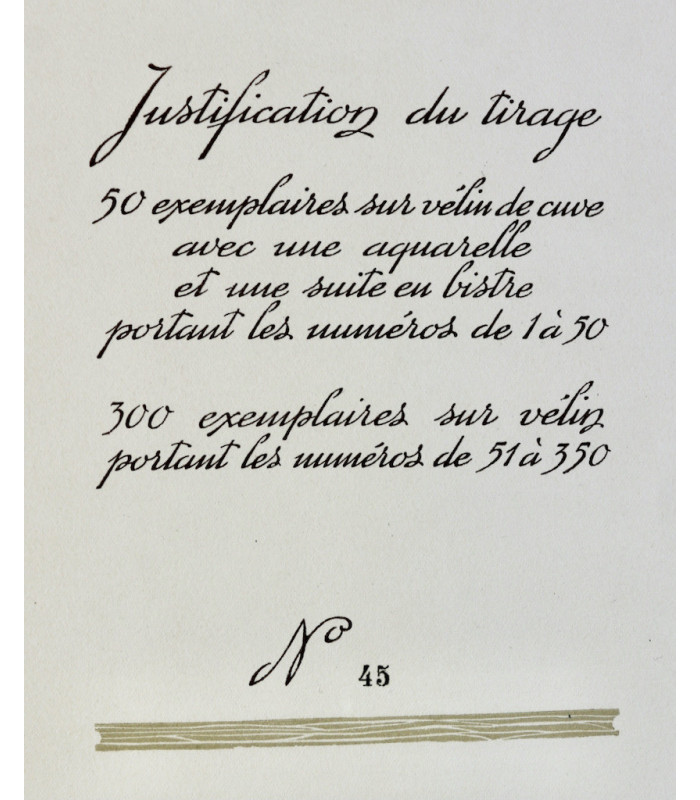 Justification du tirage
50 exemplaires sur vélin de cuve
avec une aquarelle
et une suite en bistre
portant les numéros de 1 à 50
300 exemplaires sur vélin
portant les numéros de 51 à 350
No 45